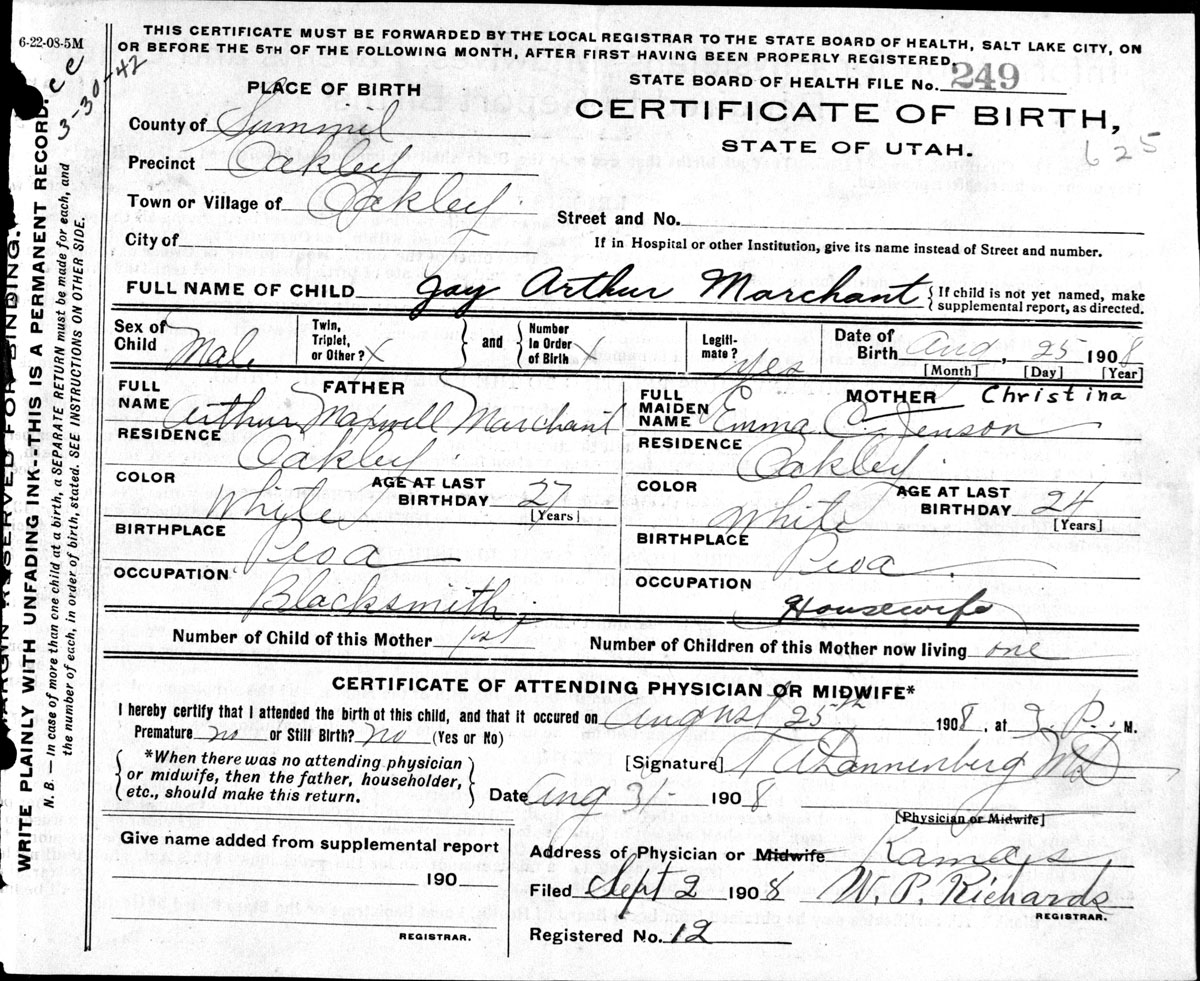 6-22-08-5M
c c
3-30-42
THIS CERTIFICATE MUST BE FORWARDED BY THE LOCAL REGISTRAR TO THE STATE BOARD OF HEALTH, SALT LAKE CITY, ON
OR BEFORE THE 5TH OF THE FOLLOWING MONTH, AFTER FIRST HAVING BEEN PROPERLY REGISTERED.
STATE BOARD OF HEALTH FILE No. 249
PLACE OF BIRTH
CERTIFICATE OF BIRTH,
STATE OF UTAH.
625
County of Summit
Precinct Oakley
Town or Village of Oakley
Street and No.
City of
If in Hospital or other Institution, give its name instead of Street and number.
FULL NAME OF CHILD Jay Arthur Marchant { If child is not yet named, make
supplemental report, as directed.
Sex of Child Male
Twin, Triplet, or Other? X } and { Number in Order of Birth X
Legiti-mate? Yes
Date of Birth Aug, 25 1908
[Month] [Day] [Year]
FATHER
FULL NAME Arthur Maxwell Marchant
RESIDENCE Oakley
COLOR White AGE AT LAST BIRTHDAY 27
[Years]
BIRTHPLACE Peoa
OCCUPATION Blacksmith
MOTHER Christina
FULL MAIDEN NAME Emma C. Jenson
RESIDENCE Oakley
COLOR White AGE AT LAST BIRTHDAY 24
[Years]
BIRTHPLACE Peoa
OCCUPATION Housewife
Number of Child of this Mother 1st Number of Children of this Mother now living one
CERTIFICATE OF ATTENDING PHYSICIAN OR MIDWIFE*
I hereby certify that I attended the birth of this child, and that it occured on August 25th 1908, at 3 P. M.
Premature no or Still Birth? no (Yes or No)
{ *When there was no attending physician
or midwife, then the father, householder,
etc., should make this return. }
[Signature] Dannenberg MD
Date Aug 31- 1908
[Physician or Midwife]
Give name added from supplemental report
190
REGISTRAR.
Address of Physician or Midwife Kamas,
Filed Sept 2 1908 W. P. Richards
REGISTRAR.
Registered No. 12
MARGIN RESERVED FOR BINDING.
WRITE PLAINLY WITH UNFADING INK--THIS IS A PERMANENT RECORD.
N. B. — In case of more than one child at a birth, a SEPARATE RETURN must be made for each, and
the number of each, in order of birth, stated. SEE INSTRUCTIONS ON OTHER SIDE.